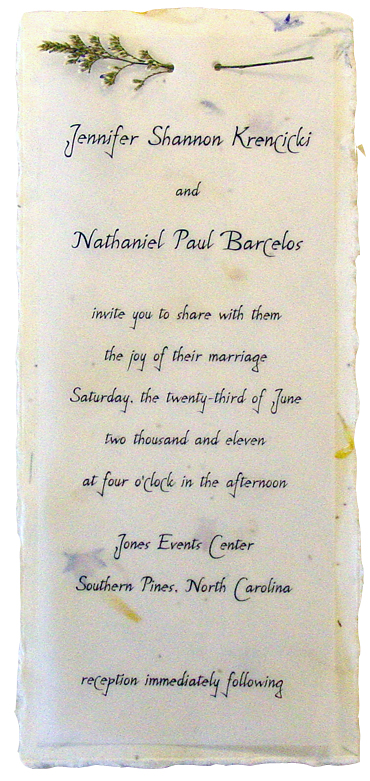 Jennifer Shannon Krencicki
and
Nathaniel Paul Barcelos
invite you to share with them
the joy of their marriage
Saturday, the twenty-third of June
two thousand and eleven
at four o'clock in the afternoon
Jones Events Center
Southern Pines, North Carolina
reception immediately following